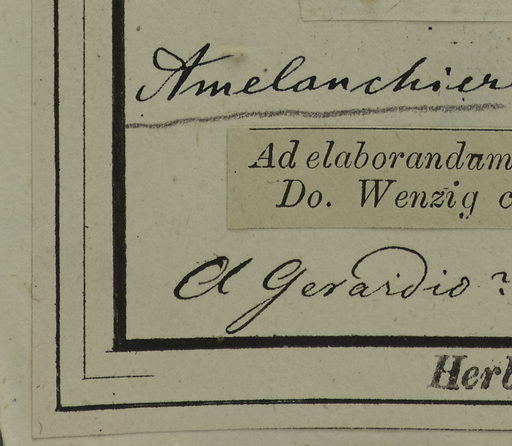 Amelanchier
Ad elaborandum
Do. Wenzig c
a Gerardio?
Herb